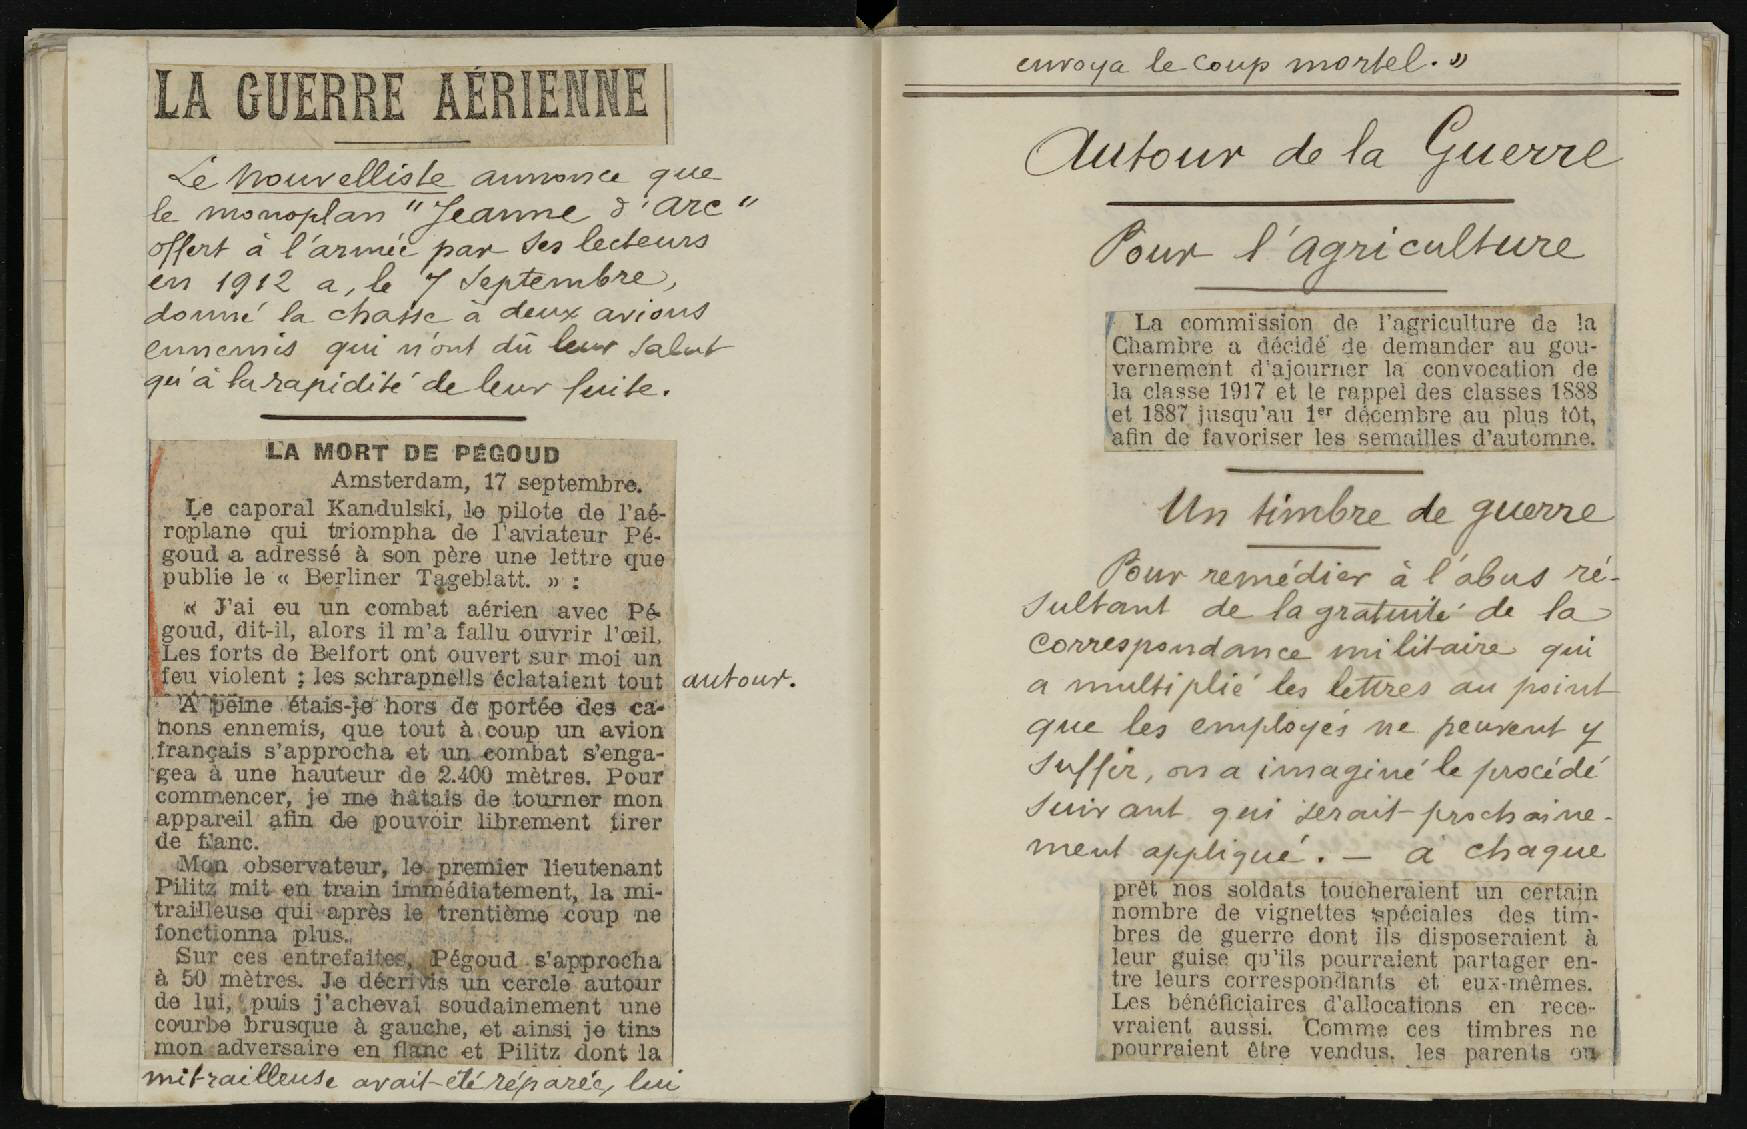 LA GUERRE AÉRIENNE
Le Nouvelliste annonce que
le monoplan "Jeanne d'Arc"
offert à l'armée par ses lecteurs
en 1912 a, le 7 Septembre,
donné la chasse à deux avions
ennemis qui n'ont dû leur salut
qu'à la rapidité de leur fuite.
LA MORT DE PÉGOUD
Amsterdam, 17 septembre.
Le caporal Kandulski, le pilote de l'aé-
roplane qui triompha de l'aviateur Pé-
goud a adressé à son père une lettre que
publie le « Berliner Tageblatt. » :
« J'ai eu un combat aérien avec Pé-
goud, dit-il, alors il m'a fallu ouvrir l'œil.
Les forts de Belfort ont ouvert sur moi un
feu violent ; les schrapnells éclataient tout autour.
A peine étais-je hors de portée des ca-
nons ennemis, que tout à coup un avion
français s'approcha et un combat s'enga-
gea à une hauteur de 2.400 mètres. Pour
commencer, je me hâtais de tourner mon
appareil afin de pouvoir librement tirer
de flanc.
Mon observateur, le premier lieutenant
Pilitz mit en train immédiatement, la mi-
trailleuse qui après le trentième coup ne
fonctionna plus.
Sur ces entrefaites, Pégoud s'approcha
à 50 mètres. Je décrivis un cercle autour
de lui, puis j'achevai soudainement une
courbe brusque à gauche, et ainsi je tins
mon adversaire en flanc et Pilitz dont la
mitrailleuse avait été réparée, lui
envoya le coup mortel. »
Autour de la Guerre
Pour l'agriculture
La commission de l'agriculture de la
Chambre a décidé de demander au gou-
vernement d'ajourner la convocation de
la classe 1917 et le rappel des classes 1888
et 1887 jusqu'au 1er décembre au plus tôt,
afin de favoriser les semailles d'automne.
Un timbre de guerre
Pour remédier à l'abus ré-
sultant de la gratuité de la
correspondance militaire qui
a multiplié les lettres au point
que les employés ne peuvent y
suffir, on a imaginé le procédé
suivant qui serait prochaine-
ment appliqué. — à chaque
prêt nos soldats toucheraient un certain
nombre de vignettes spéciales des tim-
bres de guerre dont ils disposeraient à
leur guise qu'ils pourraient partager en-
tre leurs correspondants et eux-mêmes.
Les bénéficiaires d'allocations en rece-
vraient aussi. Comme ces timbres ne
pourraient être vendus, les parents ou